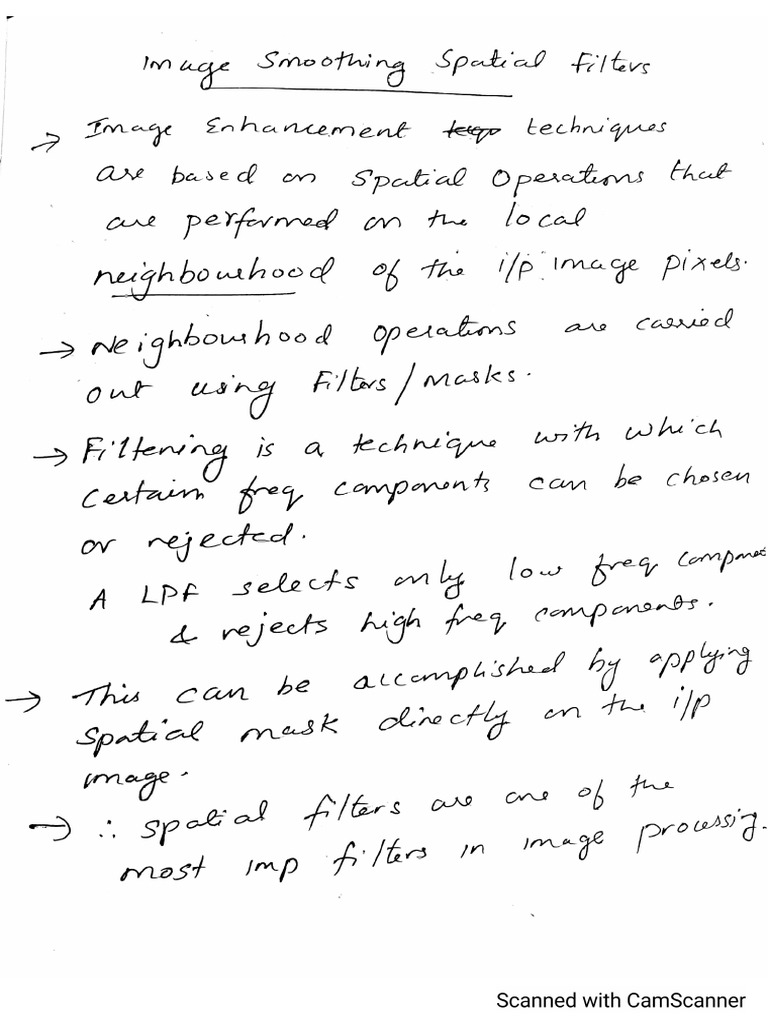 Image Smoothing Spatial Filters
→ Image Enhancement techniques
are based on Spatial Operations that
are performed on the local
neighbourhood of the i/p image pixels.
→ Neighbourhood operations are carried
out using Filters/Masks.
→ Filtening is a technique with which
certain freq components can be chosen
or rejected.
A LPF selects only low freq componet
& rejects high freq components.
→ This can be accomplished by applying
spatial mask directly on the i/p
image.
→ ∴ spatial filters are one of the
most imp filters in image processing.
Scanned with CamScanner